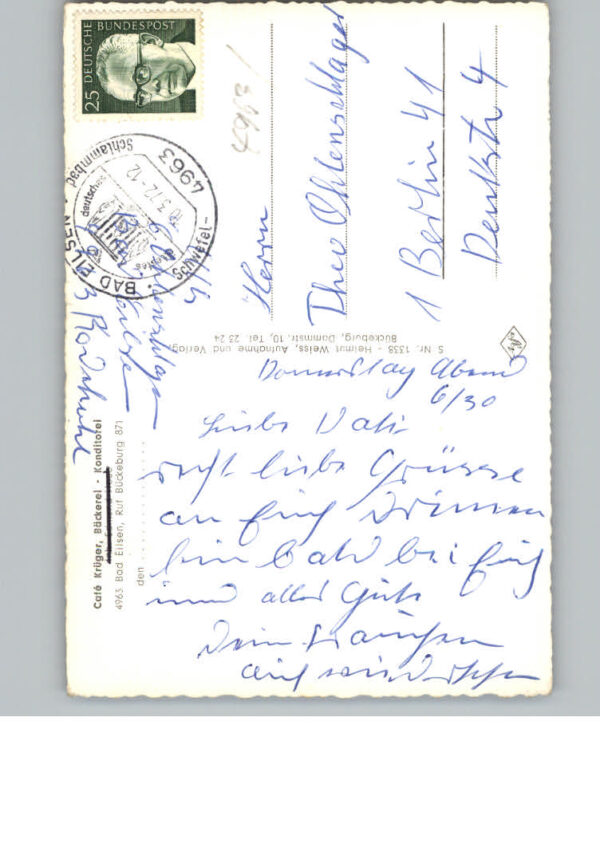 25 DEUTSCHE BUNDESPOST
4963 BAD EILSEN
Schlammbad
Schwefel-
deutsches
3.72-12
Herrn
Theo Ohlenschlager
1 Berlin 41
Denkstr 4
S Nr. 1338 - Helmut Weiss, Aufnahme und Verlag,
Bückeburg, Dammstr. 10, Tel. 23 24
Café Krüger, Bäckerei - Konditorei
4963 Bad Eilsen, Ruf Bückeburg 871
den
Donnerstag Abend
6/30
Liebe Vati
recht liebe Grüsse
an Euch
bin bald bei Euch
und alles Gute
Dein
auf wiedersehen
Ohlenschlager
Bad Eilsen